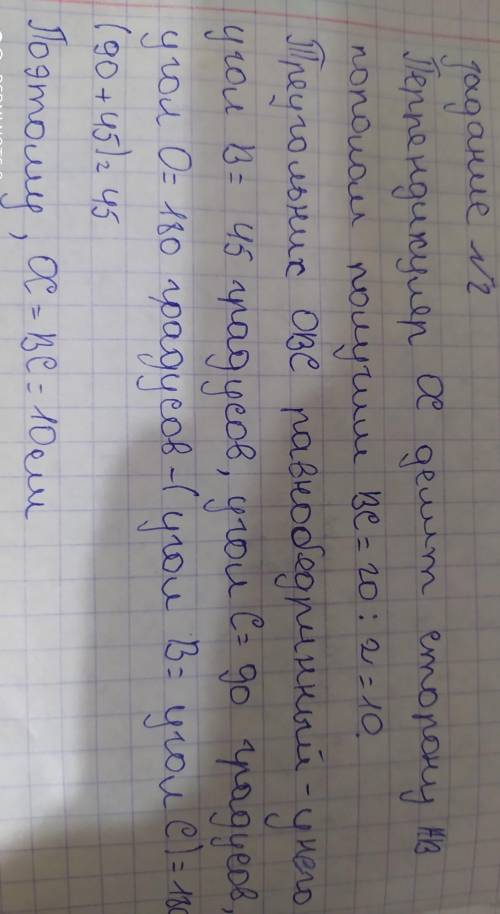 задание №2
Перпендикуляр ОС делит сторону АВ
пополам получим ВС = 20 : 2 = 10.
Треугольник ОВС равнобедринный - у него
угол В = 45 градусов, угол С = 90 градусов,
угол О = 180 градусов - ( угол В = угол С) = 180
(90 + 45) = 45
Поэтому, ОС = ВС = 10 см